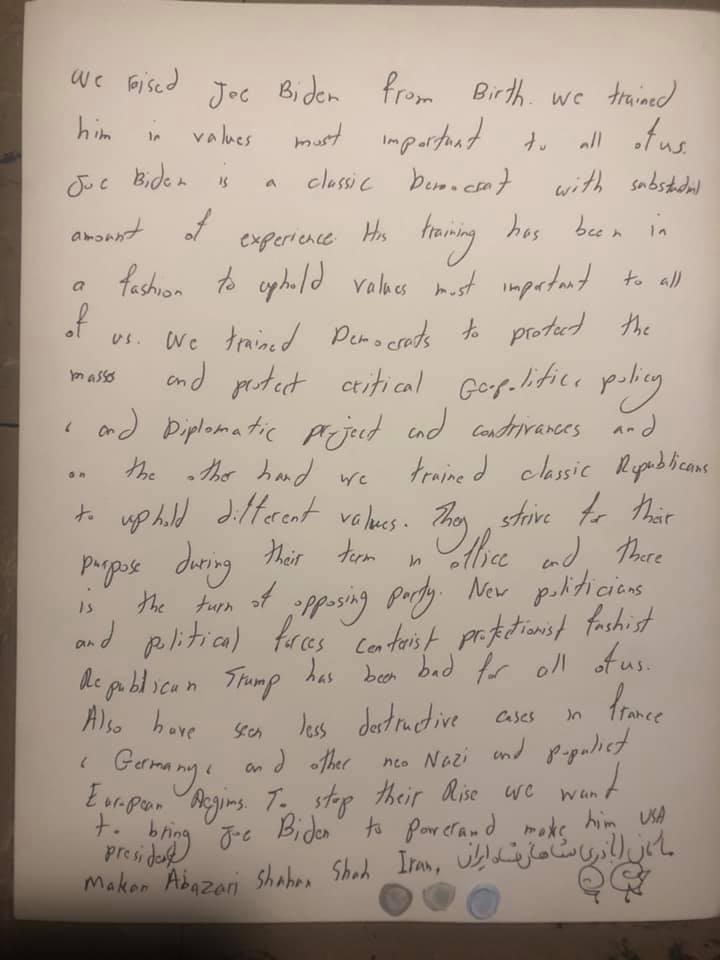 We raised Joe Biden from Birth. We trained
him in values most important to all of us.
Joe Biden is a classic Democrat with substantial
amount of experience. His training has been in
a fashion to uphold values most important to all
of us. We trained Democrats to protect the
masses and protect critical Geopolitics policy
, and Diplomatic project and contrivances and
on the other hand we trained classic Republicans
to uphold different values. They strive for their
purpose during their term in office and there
is the turn of opposing party. New politicians
and political forces centerist protectionist fashist
Republican Trump has been bad for all of us.
Also have seen less destructive cases in france
, Germany, and other neo Nazi and populist
European Regims. To stop their Rise we want
to bring Joe Biden to power and make him USA
president
Makan Abazari Shahan Shah Iran, ماکان اباذری شاهان شاه ایران